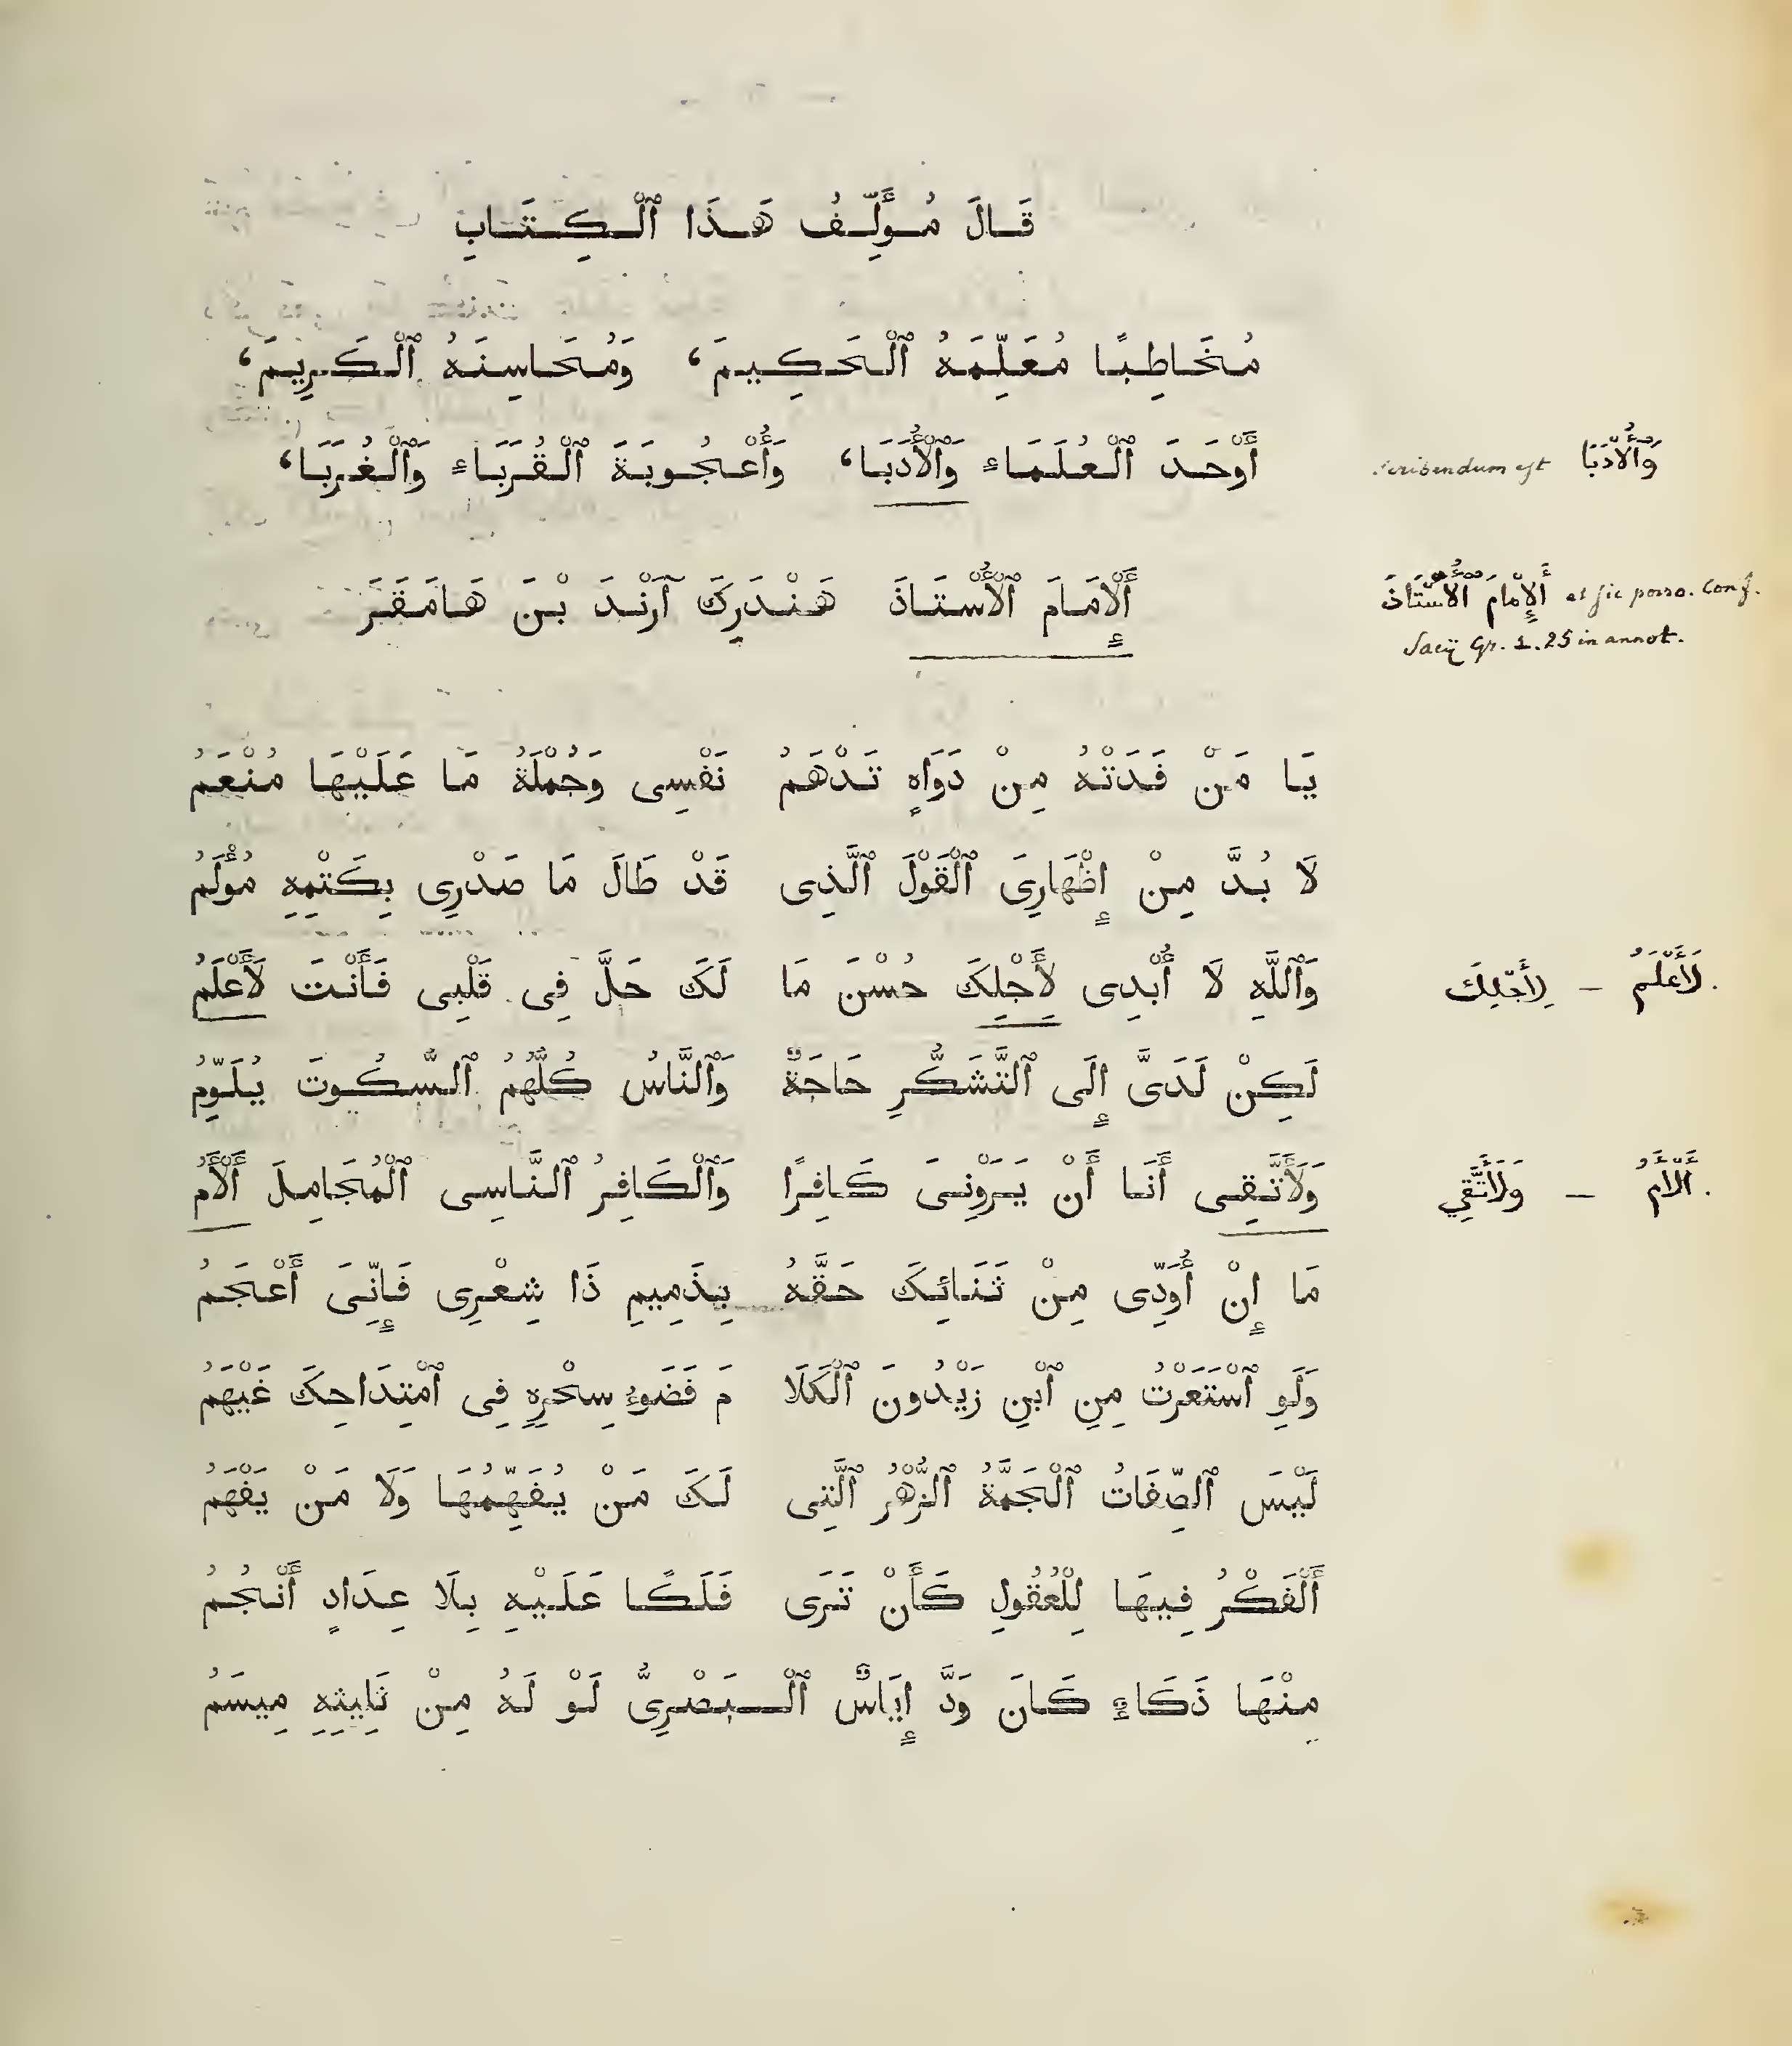 قَالَ مُؤَلِّفُ هَذَا ٱلْكِتَابِ
مُخَاطِبًا مُعَلِّمَهُ ٱلْحَكِيمَ، وَمُحَاسِنَهُ ٱلْكَرِيمَ،
أَوْحَدَ ٱلْعُلَمَاءِ وَٱلْأُدَبَا، وَأُعْجُوبَةَ ٱلْقُرَبَاءِ وَٱلْغُرَبَا،
scribendum est وَٱلْأُدَبَا
أَلْإِمَامَ ٱلْأُسْتَاذَ هَنْدَرِكَ آرَنْدَ بْنَ هَامَقَرَ
أَلْإِمَامَ ٱلْأُسْتَاذَ et sic porro. Conf.
Sacÿ Gr. 1. 25 in annot.
يَا مَنْ فَدَتْهُ مِنْ دَوَاهٍ تَدْهَمُ نَفْسِى وَجُمْلَةُ مَا عَلَيْهَا مُنْعَمُ
لَا بُدَّ مِنْ إِظْهَارِىَ ٱلْقَوْلَ ٱلَّذِى قَدْ طَالَ مَا صَدْرِى بِكَتْمِهِ مُؤْلَمُ
وَٱللَّهِ لَا أُبْدِى لِأَجْلِكَ حُسْنَ مَا لَكَ حَلَّ فِى قَلْبِى فَأَنْتَ لَأَعْلَمُ
لَأَعْلَمُ – لِأَجْلِكَ
لَكِنْ لَدَىَّ إِلَى ٱلتَّشَكُّرِ حَاجَةٌ وَٱلنَّاسُ كُلُّهُمُ ٱلسُّكُوتَ يُلَوِّمُ
وَلَأَتَّقِى أَنَا أَنْ يَرَوْنِىَ كَافِرًا وَٱلْكَافِرُ ٱلنَّاسِى ٱلْمُجَامِلَ أَلْأَمُ
أَلْأَمُ – وَلَأَتَّقِي
مَا إِنْ أُوَدِّى مِنْ ثَنَائِكَ حَقَّهُ بِذَمِيمِ ذَا شِعْرِى فَإِنِّىَ أَعْجَمُ
وَلَوِ ٱسْتَعَرْتُ مِنِ ٱبْنِ زَيْدُونَ ٱلْكَلَا مَ فَضَوءُ سِحْرِهِ فِى ٱمْتِدَاحِكَ غَيْهَمُ
لَيْسَ ٱلصِّفَاتُ ٱلْجَمَّةُ ٱلزُّهْرُ ٱلَّتِى لَكَ مَنْ يُفَهِّمُهَا وَلَا مَنْ يَفْهَمُ
أَلْفَكْرُ فِيهَا لِلْعُقُولِ كَأَنْ تَرَى فَلَكًا عَلَيْهِ بِلَا عِدَادٍ أَنْجُمُ
مِنْهَا ذَكَاءٌ كَانَ وَدَّ إِيَاسٌ ٱلْبَصْرِىُّ لَوْ لَهُ مِنْ ثَلِيثِهِ مِيسَمُ